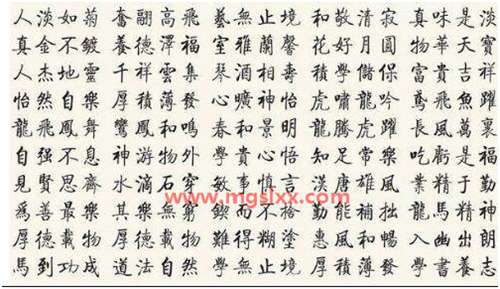 人淡如菊 奮翮高飛 藝無止境 和敬清寂 真味是淡
真金不鍍 養德澤福 室雅蘭馨 花好月圓 物華天寶
人杰地靈 千祥雲集 琴酒相壽 積學儲保 富貴吉祥
怡然自樂 厚積薄發 心曠神怡 虎嘯龍吟 鳶飛魚躍
龍飛鳳舞 鸞鳳和鳴 春和景明 龍騰虎躍 長風萬裏
自强不息 神游物外 學貴心悟 知足常樂 吃虧是福
見賢思齊 水滴石穿 敏事慎言 漢唐雄風 業精于勤
www.mgslxx.com
爲善最樂 其樂無窮 鍥而不 勤能補拙 龍馬精神
厚德載物 厚德載物 難得糊塗 惠風和暢 入幽出朗
馬到功成 道法自然 學無止境 厚積薄發 學書養志